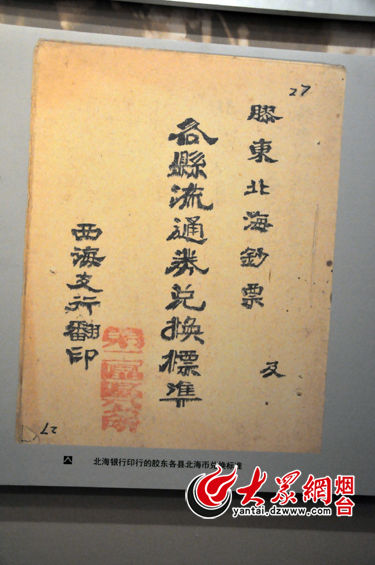 27
膠東北海鈔票 及
各縣流通券兑換標準
西海支行翻印
第一區區公所
27
北海银行印行的胶东各县北海币兑换标准
大眾網 烟台
yantai.dzwww.com